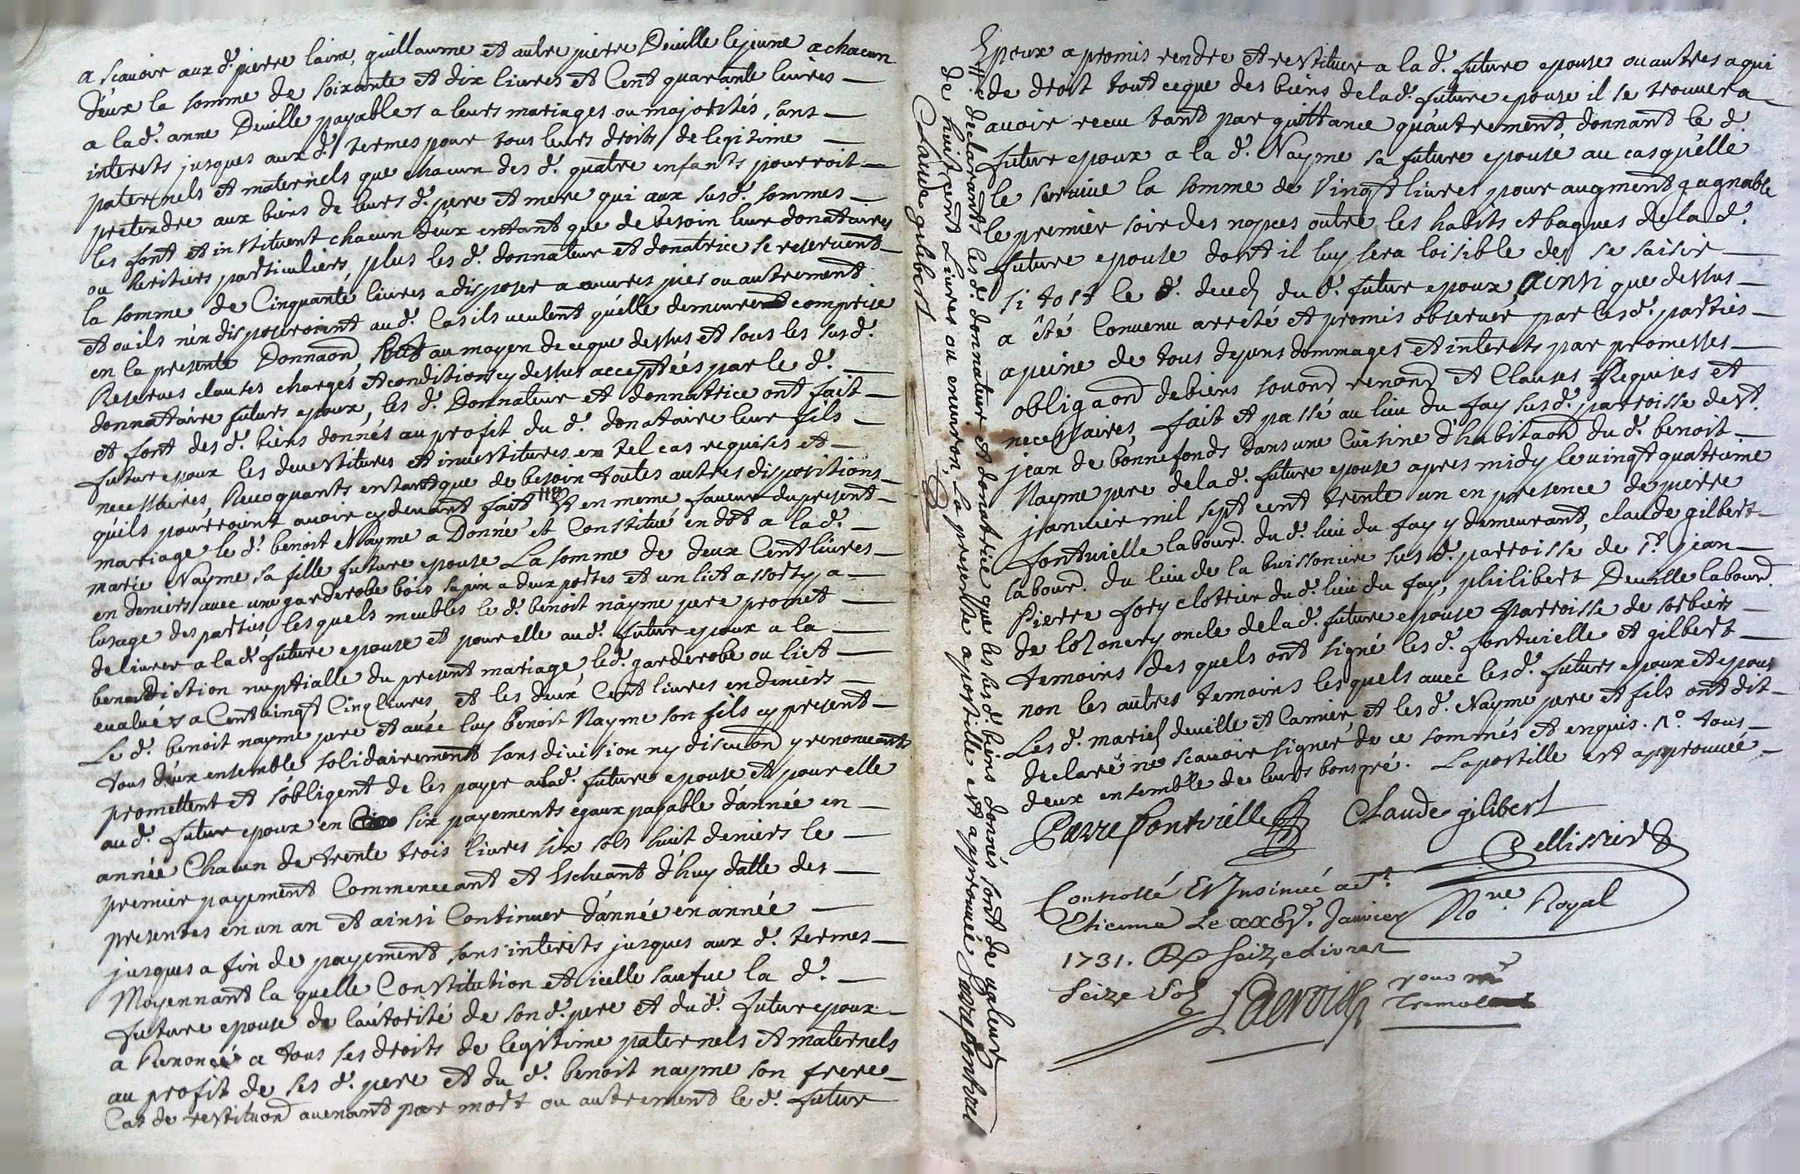 a scavoir aux d. pierre laine, guillaume et autre pierre Deuille lejeune a chacun
d'eux la somme de soixante et dix livres et Cent quarante livres
a la d. anne Deuille payables a leurs mariages ou majorités, sans
interets jusques aux d. termes pour tous leurs droits de legitime
paternels et maternels que chacun des d. quatre enfants pourroit
pretendre aux biens de leurs d. pere et mere qui aux susd. sommes
les font et instituent chacun d'eux entant que de besoin leur donataires
ou heritiers particuliers, plus les d. donnateur et donatrice se reservent
la somme de Cinquante livres a disposer a œuvres pies ou autrement
et ou ils n'en disposeroient aud. Cas ils veulent qu'elle demeure comprise
en la presente Donnaon, Et au moyen de ce que dessus et sous les susd.
Reserves clauses charges et condition cy dessus acceptées par le d.
donnataire futur epoux, les d. Donnateur et donnatrice ont fait
et font des d. biens donnés au profit du d. donataire leur fils
futur epoux les devestitures et investitures en tel cas requises et
necessaires, Revoquants entant que de besoin toutes autres dispositions
qu'ils pourroient avoir cy devant fait Et en meme faveur du present
mariage le d. benoit Nayme a Donné et Constitué en dot a la d.
marie Nayme sa fille future epouse La somme de deux Cent livres
en deniers avec une garderobe bois sapin a deux portes et un lict assorty a
lusage des partus, lesquels meubles le d. benoit nayme pere promet
delivrer a la d. future epouse et pour elle aud. futur epoux a la
benediction nuptialle du present mariage led. garderobe ou lict
evalués a Cent vingt Cinq livres et les deux Cent livres en deniers
Le d. benoit nayme pere et avec luy benoit Nayme son fils cy present
tous deux ensemble solidairement sans division ny discuon y renonceants
promettent et s'obligent de les payer a lad. future epouse et pour elle
au d. futur epoux en six payements egaux payable d'année en
année Chacun de trente trois livres six sols huit deniers le
premier payement Commenceant et Escheant d'huy datte des
presentes en un an et ainsi Continuer d'année en année
jusques a fin de payement sans interets jusques aux d. termes
Moyennant la quelle Constitution et icelle saufue la d.
future epouse de l'autorité de son d. pere et du d. futur epoux
a Renoncé a tous ses droits de legitime paternels et maternels
au profit de ses d. pere et du d. benoit nayme son frere
Cas de restituon avenant par mort ou autrement le d. futur
Epoux a promis rendre et restituer a la d. future epouse ou autres a qui
de droit tout ce que des biens de la d. future epouse il se trouvera
avoir receu tant par quittance qu'autrement, donnant le d.
futur epoux a la d. Nayme sa future epouse au cas qu'elle
le survive la somme de Vingt livres pour augment gagnable
le premier soir des nopces outre les habits et bagues de la d.
future epouse dont il luy sera loisible de se saisir
si tost le d. deces du d. futur epoux, Ainsi que dessus
a été Convenu arreté et promis observer par les d. parties
a peine de tous depuns dommages et interets par promesses
obligaon de biens soumon renon et Clauses Requises et
necessaires, fait et passé au lieu du fay susd. parroisse de st.
jean de bonnefonds dans une Cuisine d'habitaon du d. benoit
Nayme pere de la d. future epouse apres midy le vingt quatrieme
janvier mil sept cent trente un en presence de pierre
fontvielle labour. du d. lieu du fay y demeurant, claude gilbert
labour. du lieu de la buissoniere sus d. parroisse de st. jean
Pierre fory clotrier du d. lieu du fay, philibert Deuille labour.
de lozonery oncle de la d. future epouse parroisse de sorbiers
temoins des quels ont signé les d. fontvielle et gilbert
non les autres temoins lesquels avec les d. futurs epoux et epouse
Les d. mariés deuille et Carrier et les d. Nayme pere et fils ont dit
declaré ne scavoir signer de ce sommés et enquis. no. tous
deux ensemble de leurs bons gré. Lapostille est approuvée
Pierre fontvielle Claude gilibert
Pellissier
Nore. Royal
Controllé Et Insinué a St.
Etienne Le xxx Janvier
1731. Rx seize livres
seize sols
pour mr
Lacroix
les d. declarants les d. donnateur et donatrice que les susd. biens donnés sont de valeur
de huit cent Livres ou environ, La presente apostille est approuvée Pierre fontviel
Claude gilibert